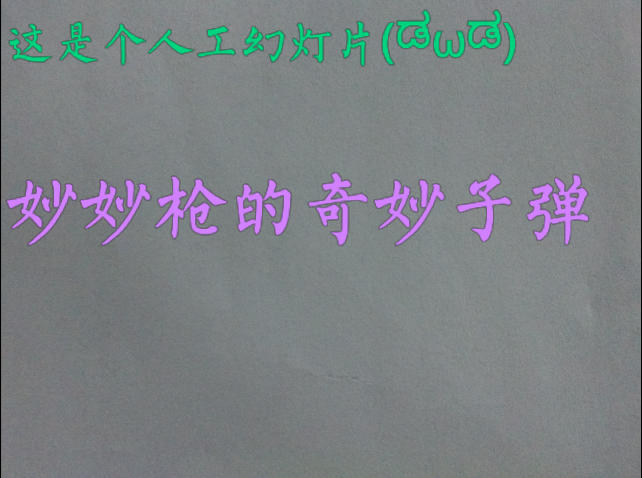 这是个人工幻灯片(ಡωಡ)
妙妙枪的奇妙子弹